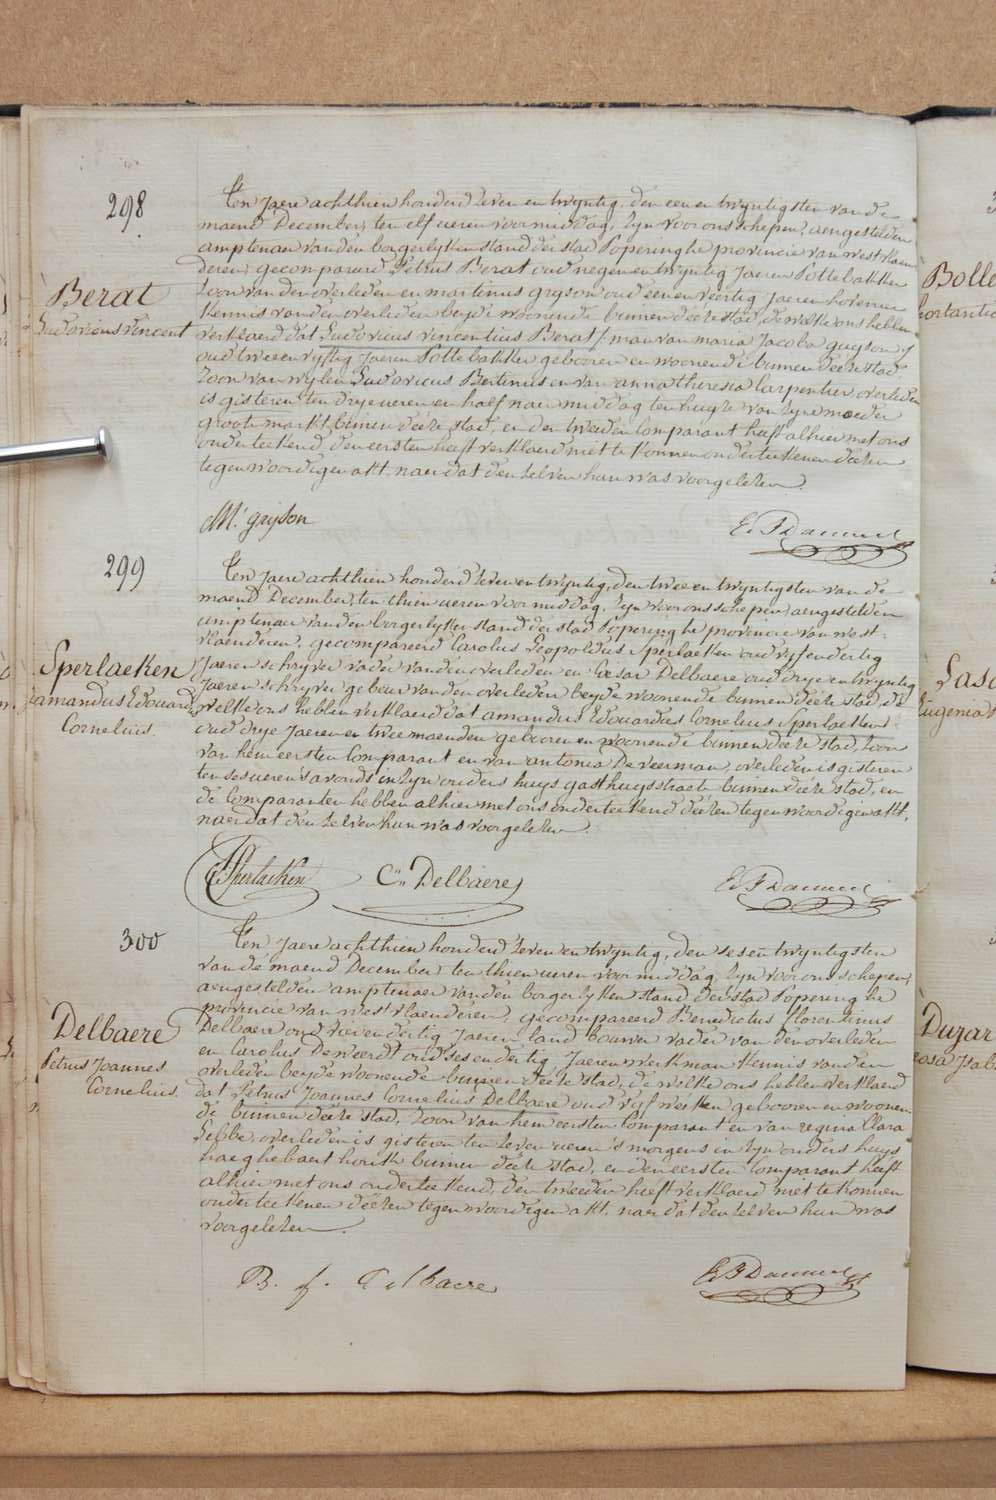 298
Berat
Ludovicus Vincent
Ten jaere achthien honderd zeven en twyntig, den een en twyntigsten van de
maend December, ten elf ueren voormiddag, zyn voor ons schepen, aengestelden
amptenaer van den borgerlyken stand der stad Poperinghe provincie van westvlaen
deren, gecompareerd Petrus Berat oud negen en twyntig jaeren Pottebakker
zoon van den overleden en martinus gryson oud een en veertig jaeren hovenier
kennis van den overleden beyde woonende binnen deéze stad, de welke ons hebben
verklaerd dat Ludovicus vincentius Berat / man van maria Jacoba gryson /
oud twee en vyftig jaeren Pottebakker gebooren en woonende binnen deéze stad
Zoon van wylen Ludovicus Bertinus en van anna theresia Carpentier overleden
is gisteren ten drye ueren en half naer middag ten huyze van zyne moeder
groote markt binnen deéze stad, en den tweeden Comparant heeft alhier met ons
onderteekend, den eersten heeft verklaerd niet te konnen onderteekenen deézen
tegenwoordigen akt. naer dat den zelven hun was voorgelezen.
M. gryson
299
Sperlaeken
amandus Edouard
Cornelius.
Ten jaere achthien honderd zeven en twyntig, den twee en twyntigsten van de
maend December, ten thien ueren voormiddag, zyn voor ons schepen, aengestelden
amptenaer van den borgerlyken stand der stad Poperinghe provincie van west-
vlaenderen, gecompareerd Carolus Leopoldus Sperlaeken oud vyf en dertig
Jaeren schryver vader van den overleden en Cesar Delbaere oud drye en twyntig
Jaeren schryver gebeur van den overleden beyde woonende binnen deéze stad, de
welke ons hebben verklaerd dat amandus Edouardus Cornelius Sperlaeken
oud drye Jaeren en twee maenden gebooren en woonende binnen deéze stad, Zoon
van hem eersten Comparant en van antonia Deveerman, overleden is gisteren
ten ses ueren 's avonds in zyn ouders huys gasthuysstraete binnen deéze stad, en
de Comparanten hebben alhier met ons onderteekend deézen tegenwoordigen akt.
naer dat den zelven hun was voorgelezen.
Sperlaeken
C. Delbaere
300
Delbaere
Petrus Joannes
Cornelius.
Ten jaere achthien honderd zeven en twyntig, den ses en twyntigsten
van de maend December ten thien ueren voormiddag, zyn voor ons schepen,
aengestelden amptenaer van den borgerlyken stand der stad Poperinghe
provincie van westvlaenderen, gecompareerd Benedictus florentinus
Delbaere oud vier en dertig Jaeren land bouwer vader van den overleden
en Carolus Deweerdt oud ses en dertig Jaeren werkman kennis van den
overleden beyde woonende binnen deéze stad, de welke ons hebben verklaerd
dat Petrus Joannes Cornelius Delbaere oud vyf weéken gebooren en woonen
de binnen deéze stad, Zoon van hem eersten Comparant en van regina Clara
Lebbe, overleden is gisteren ten zeven ueren 's morgens in zyn ouders huys
haeghebaert houk binnen deéze stad, en den eersten Comparant heeft
alhier met ons onderteekend, den tweeden heeft verklaerd niet te konnen
onderteekenen deézen tegenwoordigen akt. naer dat den zelven hun was
voorgelezen.
B. f. Delbaere